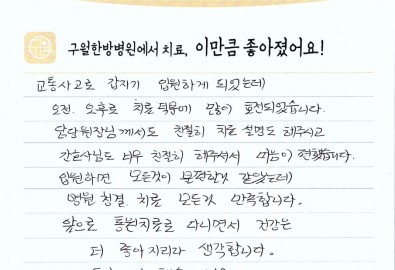 구월한방병원에서 치료, 이만큼 좋아졌어요!
교통사고로 갑자기 입원하게 되었는데
오전. 오후로 치료 덕분에 많이 호전되었습니다.
담당원장님께서도 친절히 치료 설명도 해주시고
간호사님도 너무 친절히 해주셔서 마음이 편했습니다.
입원하면 모든것이 불편할것 같았는데
병원 청결. 치료 모든것 만족합니다.
앞으로 통원치료로 다니면서 건강는
더 좋아지리라 생각합니다.